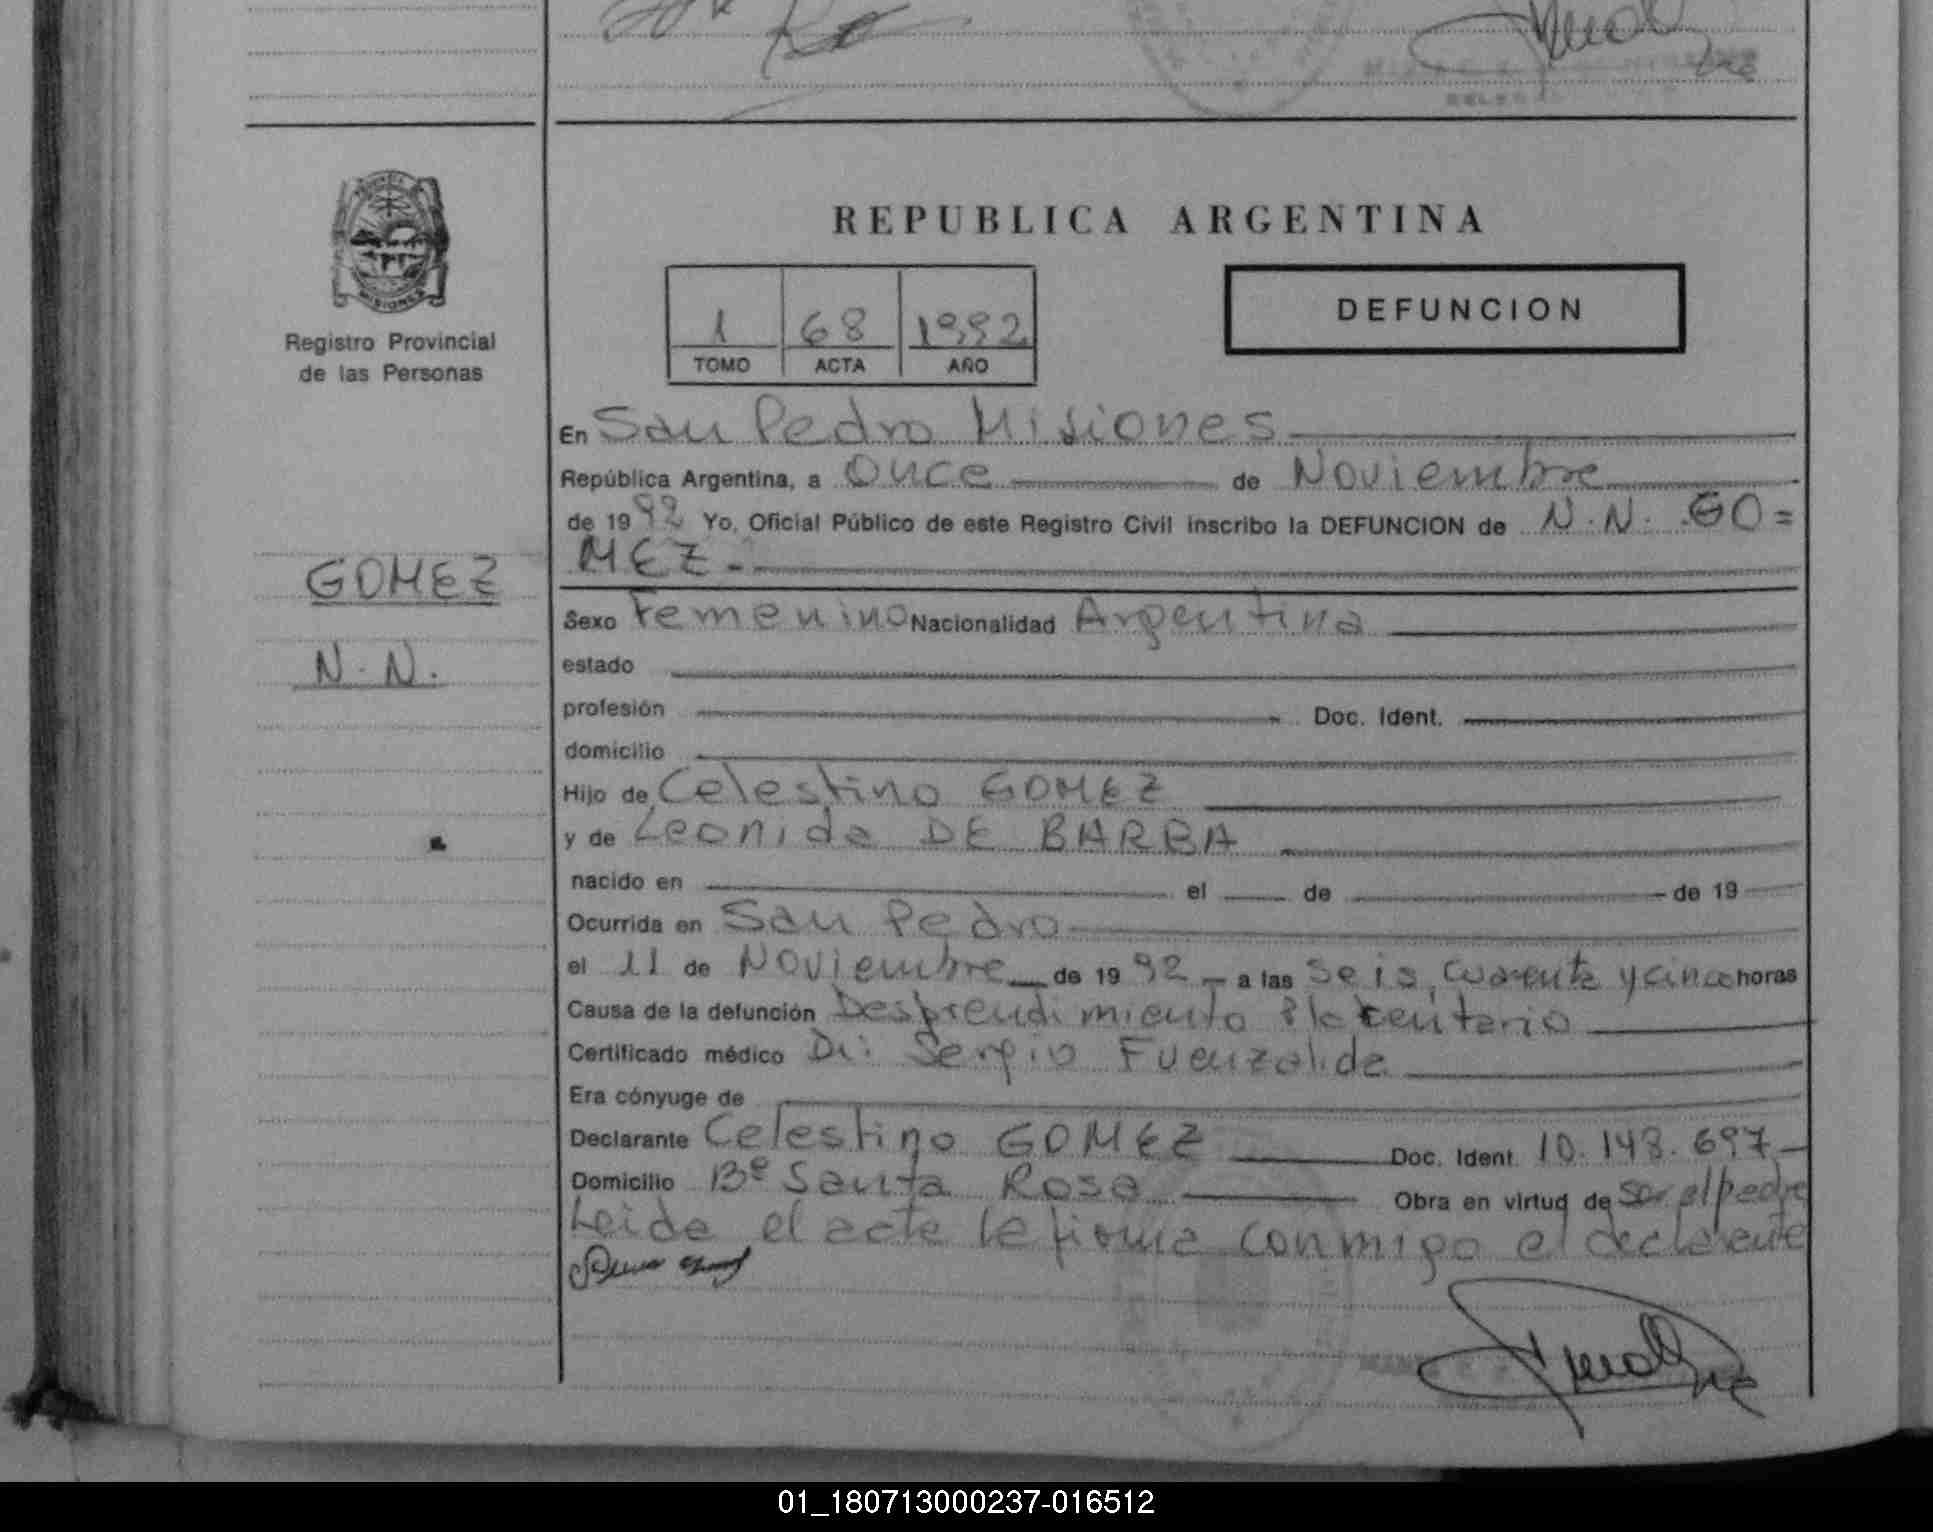 REPUBLICA ARGENTINA
MISIONES
Registro Provincial
de las Personas
1 68 1992
TOMO ACTA AÑO
DEFUNCION
GOMEZ
N.N.
En San Pedro Misiones
República Argentina, a Once de Noviembre
de 1992 Yo, Oficial Público de este Registro Civil inscribo la DEFUNCION de N.N. GO=
MEZ.-
Sexo Femenino Nacionalidad Argentina
estado
profesión Doc. Ident.
domicilio
Hijo de Celestino GOMEZ
y de Leonida DE BARBA
nacido en el de de 19
Ocurrida en San Pedro
el 11 de Noviembre de 1992 a las seis, cuarenta y cinco horas
Causa de la defunción Desprendimiento Placentario
Certificado médico Dr: Sergio Fuenzalida
Era cónyuge de
Declarante Celestino GOMEZ Doc. Ident. 10.148.697
Domicilio Bº Santa Rosa Obra en virtud de ser el padre
Leida el acta la firma conmigo el declarante
01_180713000237-016512